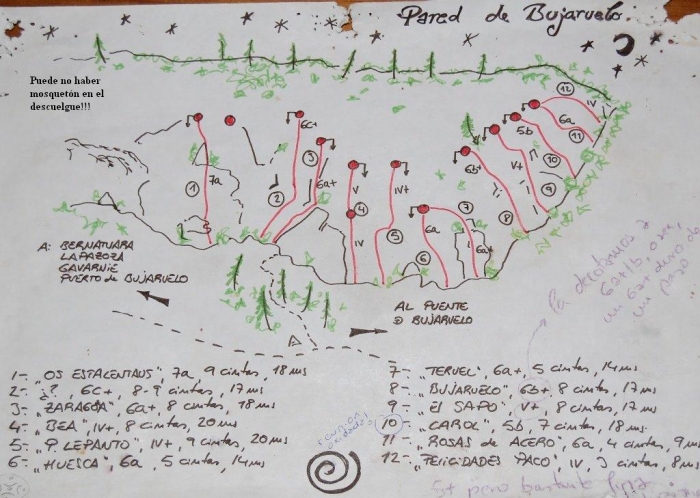 Pared de Bujaruelo.
Puede no haber
mosquetón en el
descuelgue!!!
12
IV
6c+
6a
11
5b
3
10
7a
6a+
V
IV+
6b+
V+
9
1
2
4
7
8
5
6a
IV
6
6a+
A: BERNATUARA
LAPAZOZA
GAVARNIE
PUERTO DE BUJARUELO
AL PUENTE
D BUJARUELO
la decotamos a
6a+/b, o sea,
un 6a+ duro de
un paso
1- "OS ESTALENTAUS", 7a, 9 cintas, 18 ms
2- ¿?, 6c+, 8-9 cintas, 17 ms
3- "ZARAGOZA", 6a+, 8 cintas, 18 ms
4- "BEA", IV+, 8 cintas, 20 ms
5- "P. LEPANTO", IV+, 9 cintas, 20 ms
6- "HUESCA", 6a, 5 cintas, 14 ms
7- "TERUEL", 6a+, 5 cintas, 14 ms
8- "BUJARUELO", 6b+, 8 cintas, 17 ms
9- "EL SAPO", V+, 8 cintas, 17 ms
10 "CAROL", 5b, 7 cintas, 18 ms.
11- "ROSAS de ACERO", 6a, 4 cintas, 9 ms
12- "FELICIDADES PACO", IV, 3 cintas, 8 ms
reunión
5+ pero bastante fina